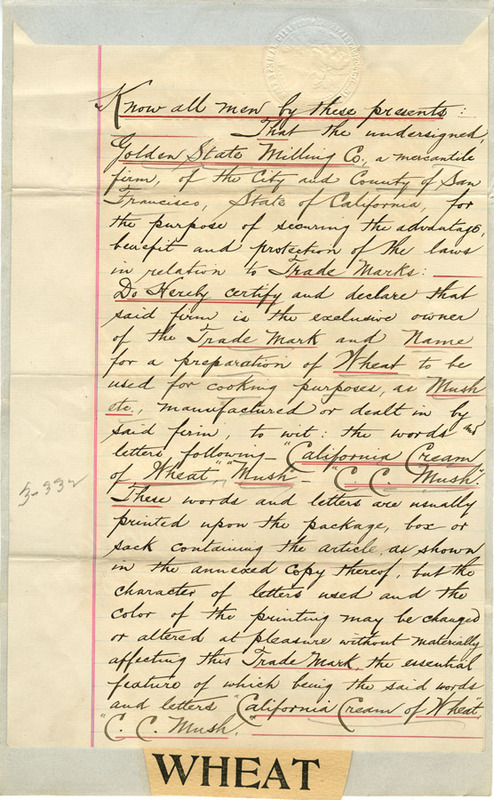 Know all men by these presents:
That the undersigned,
Golden State Milling Co., a mercantile
firm, of the City and County of San
Francisco, State of California, for
the purpose of securing the advantage,
benefit and protection of the laws
in relation to Trade Marks:
Do Hereby certify and declare that
said firm is the exclusive owner
of the Trade Mark and Name
for a preparation of Wheat to be
used for cooking purposes, as Mush
etc., manufactured or dealt in by
said firm, to wit: the words and
letters following - "California Cream
of Wheat" "Mush" - "C. C. Mush".
3-332
These words and letters are usually
printed upon the package, box or
sack containing the article, as shown
in the annexed copy thereof, but the
character of letters used and the
color of the printing may be changed
or altered at pleasure without materially
affecting this Trade Mark, the essential
feature of which being the said words
and letters "California Cream of Wheat",
"C. C. Mush."
WHEAT